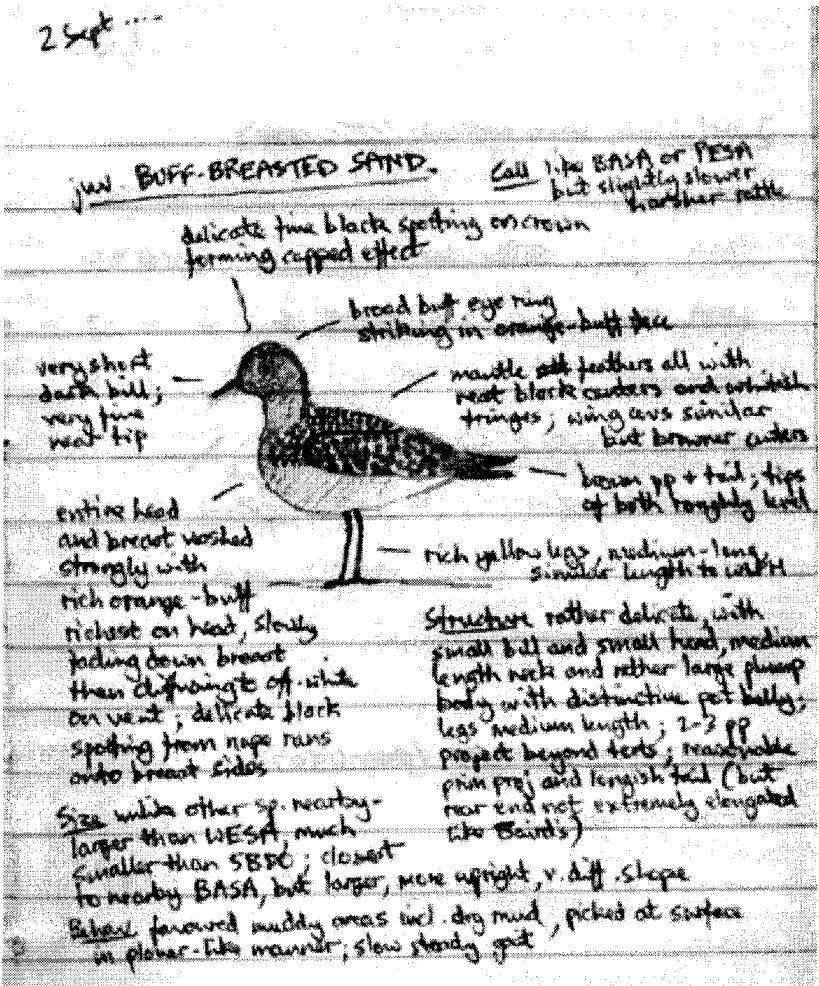 2 Sept ....
juv. BUFF-BREASTED SAND.
Call like BASA or PESA
but slightly slower
harsher rattle
delicate fine black spotting on crown
forming capped effect
broad buff eye ring
striking in orange-buff face
very short
dark bill;
very fine
near tip
mantle feathers all with
neat black centers and whitish
fringes; wing cvs similar
but browner centers
brown pp + tail; tips
of both roughly level
entire head
and breast washed
strongly with
rich orange-buff
richest on head, slowly
fading down breast
then to off-white
on vent; delicate black
spotting from nape runs
onto breast sides
rich yellow legs, medium-long,
similar length to
Structure rather delicate, with
small bill and small head, medium
length neck and rather large plump
body with distinctive pot belly;
legs medium length; 2-3 pp
project beyond terts; reasonable
prim proj and longish tail (but
rear end not extremely elongated
like Baird's)
Size unlike other sp. nearby-
larger than WESA, much
smaller than SBDO; closest
to nearby BASA, but larger, more upright, v. diff. shape
Behav favored muddy areas incl. dry mud, picked at surface
in plover-like manner; slow steady gait